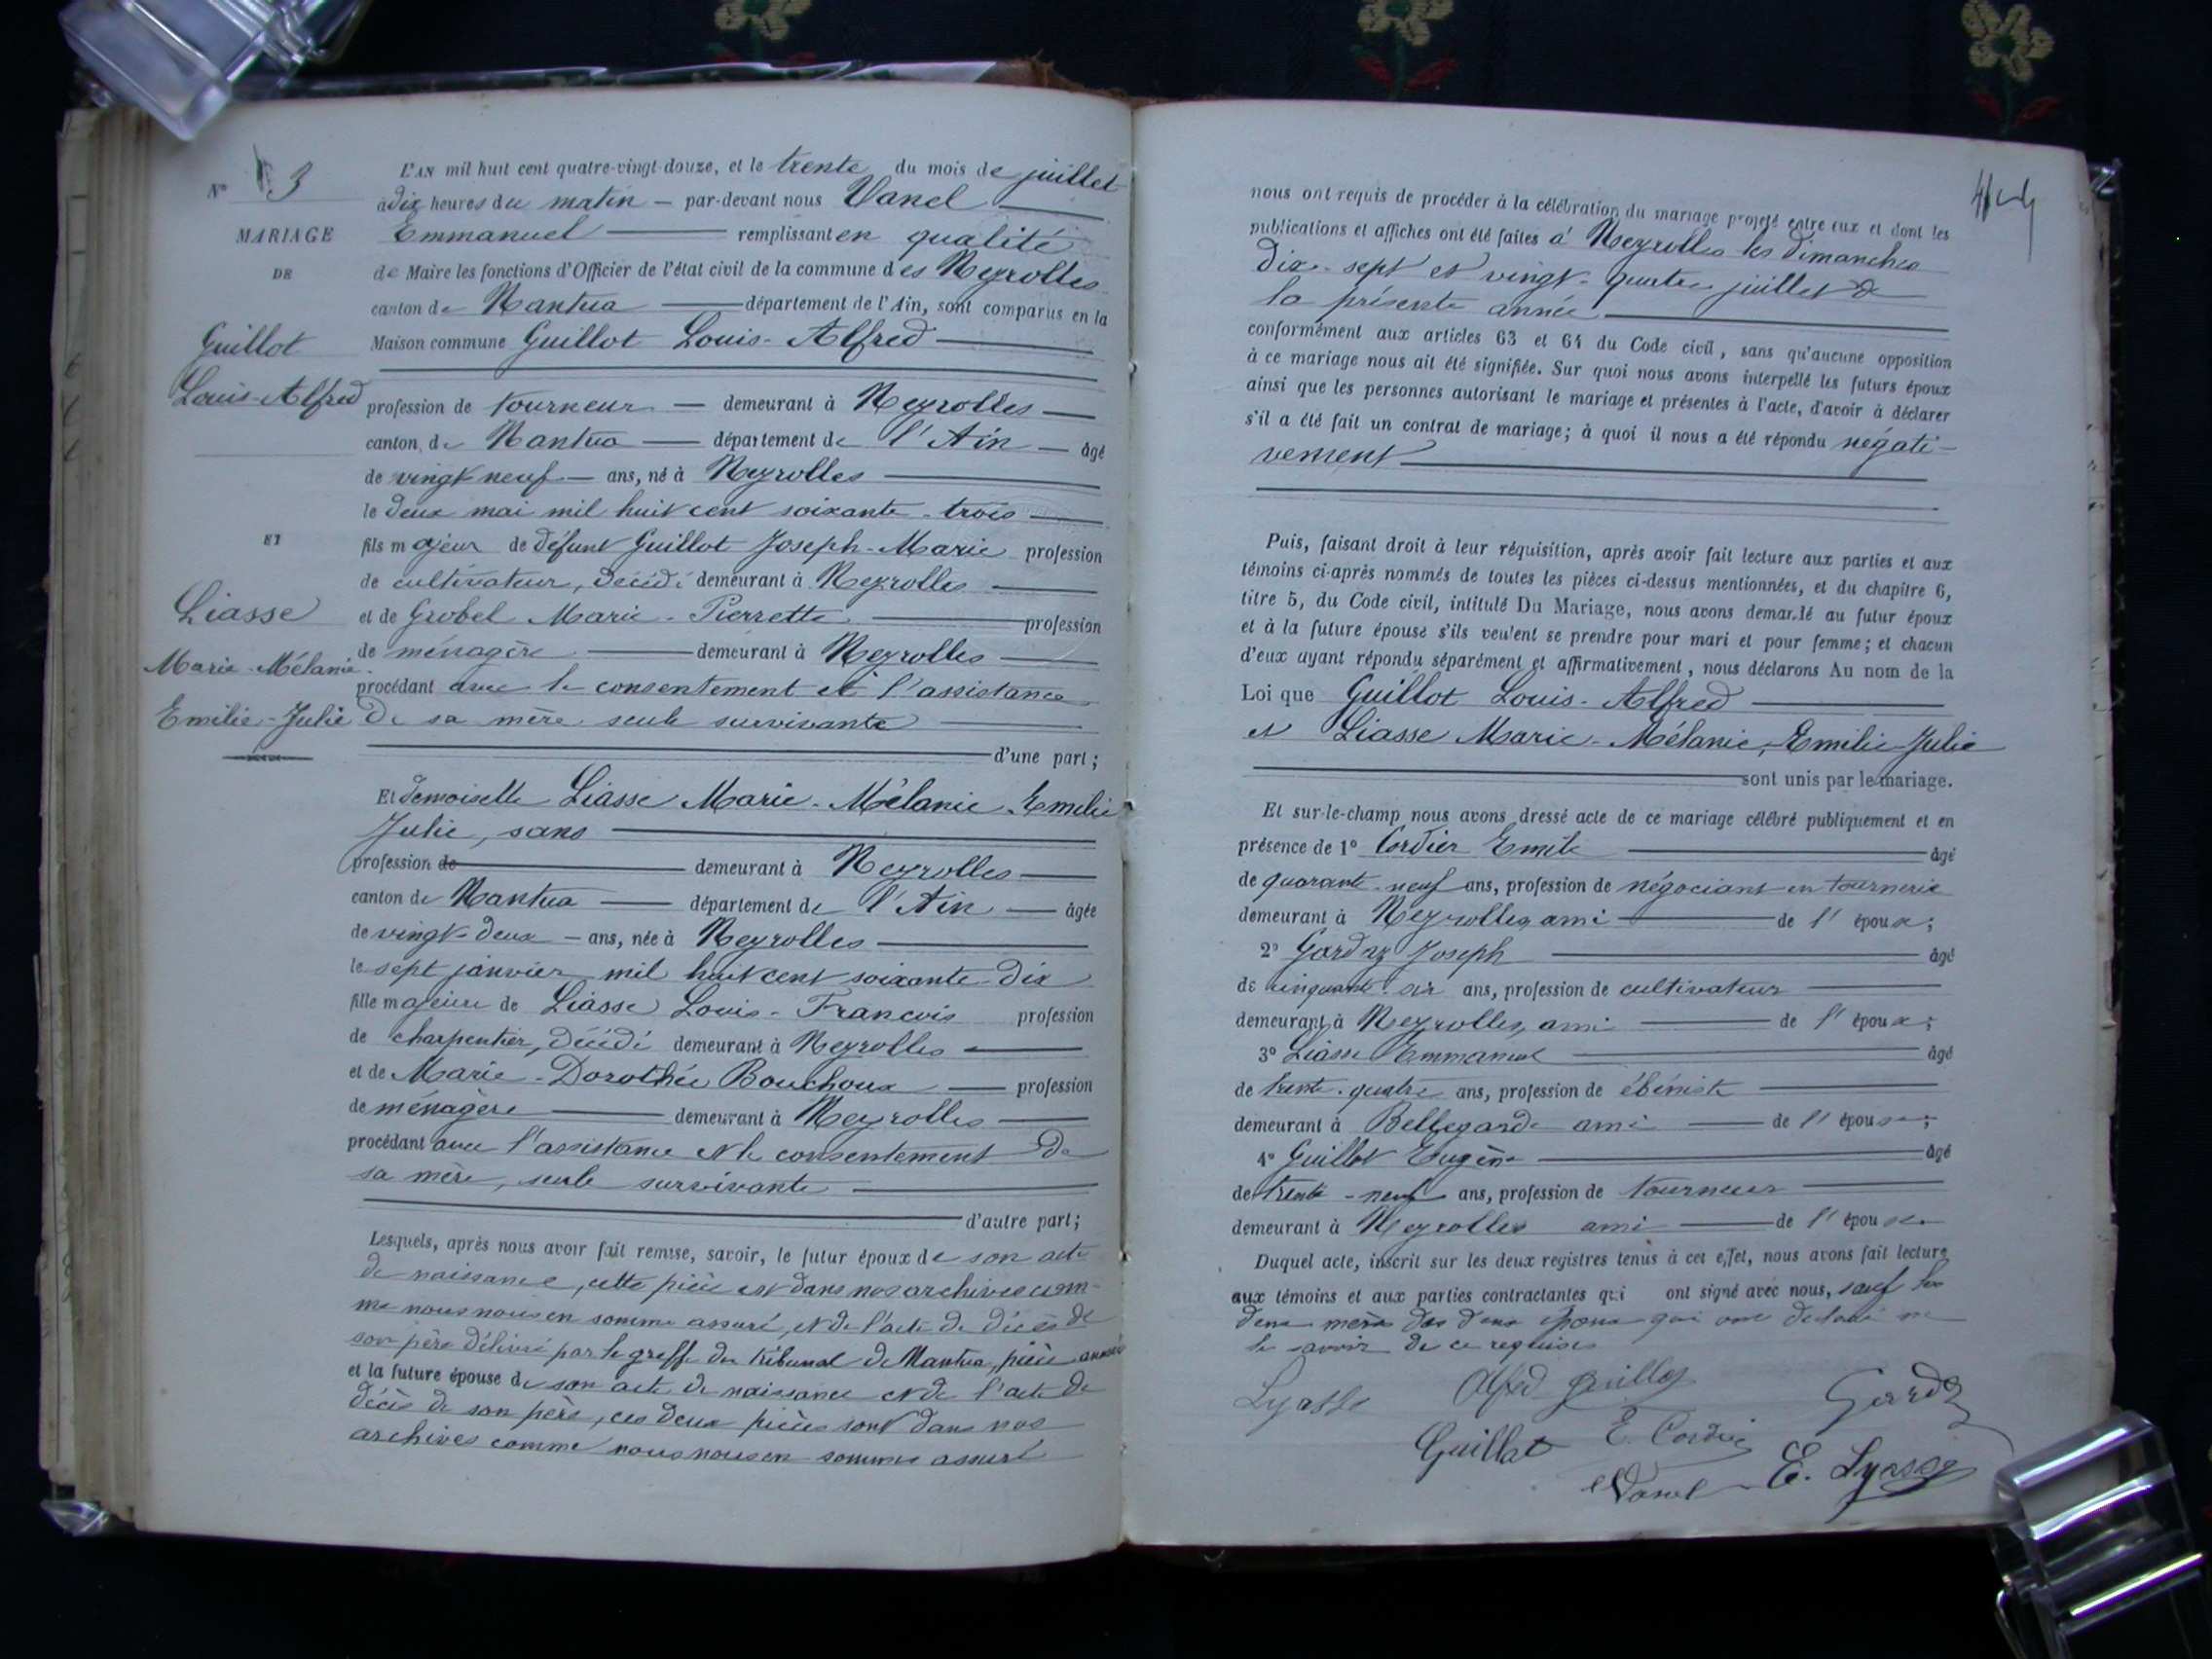 N° 3
MARIAGE
DE
Guillot
Louis-Alfred
ET
Liasse
Marie-Mélanie
Emilie-Julie
L'AN mil huit cent quatre-vingt-douze, et le trente du mois de juillet
à dix heures du matin — par-devant nous Vanel
Emmanuel — remplissant en qualité
de Maire les fonctions d'Officier de l'état civil de la commune des Neyrolles
canton de Nantua — département de l'Ain, sont comparus en la
Maison commune Guillot Louis-Alfred
profession de tourneur — demeurant à Neyrolles
canton de Nantua — département de l'Ain — âgé
de vingt neuf — ans, né à Neyrolles
le deux mai mil huit cent soixante-trois
fils majeur de défunt Guillot Joseph-Marie profession
de cultivateur, décédé demeurant à Neyrolles
et de Grobel Marie-Pierrette — profession
de ménagère — demeurant à Neyrolles
procédant avec le consentement et l'assistance
de sa mère seule survivante
d'une part;
Et demoiselle Liasse Marie-Mélanie-Emilie
Julie, sans
profession de — demeurant à Neyrolles
canton de Nantua — département de l'Ain — âgée
de vingt-deux — ans, née à Neyrolles
le sept janvier mil huit cent soixante-dix
fille majeure de Liasse Louis-François profession
de charpentier, décédé demeurant à Neyrolles
et de Marie-Dorothée Bouchoux — profession
de ménagère — demeurant à Neyrolles
procédant avec l'assistance et le consentement de
sa mère, seule survivante
d'autre part;
Lesquels, après nous avoir fait remise, savoir, le futur époux de son acte
de naissance, cette pièce est dans nos archives com-
me nous nous en somme assuré, et de l'acte de décès de
son père délivré par le greffe du tribunal de Nantua, pièce annexée
et la future épouse de son acte de naissance et de l'acte de
décès de son père, ces deux pièces sont dans nos
archives comme nous nous en sommes assuré
nous ont requis de procéder à la célébration du mariage projeté entre eux et dont les
publications et affiches ont été faites à Neyrolles les dimanches
dix-sept et vingt-quatre juillet de
la présente année
conformément aux articles 63 et 64 du Code civil, sans qu'aucune opposition
à ce mariage nous ait été signifiée. Sur quoi nous avons interpellé les futurs époux
ainsi que les personnes autorisant le mariage et présentes à l'acte, d'avoir à déclarer
s'il a été fait un contrat de mariage; à quoi il nous a été répondu négati-
vement
Puis, faisant droit à leur réquisition, après avoir fait lecture aux parties et aux
témoins ci-après nommés de toutes les pièces ci-dessus mentionnées, et du chapitre 6,
titre 5, du Code civil, intitulé Du Mariage, nous avons demandé au futur époux
et à la future épouse s'ils veulent se prendre pour mari et pour femme; et chacun
d'eux ayant répondu séparément et affirmativement, nous déclarons Au nom de la
Loi que Guillot Louis-Alfred
et Liasse Marie-Mélanie-Emilie-Julie
sont unis par le mariage.
Et sur-le-champ nous avons dressé acte de ce mariage célébré publiquement et en
présence de 1° Cordier Emile — âgé
de quarante-neuf ans, profession de négociant en tournerie
demeurant à Neyrolles, ami — de l'époux;
2° Gardaz Joseph — âgé
de cinquante-six ans, profession de cultivateur
demeurant à Neyrolles, ami — de l'époux;
3° Liasse Emmanuel — âgé
de trente-quatre ans, profession de ébéniste
demeurant à Bellegarde ami — de l'épouse;
4° Guillot Eugène — âgé
de trente-neuf ans, profession de tourneur
demeurant à Neyrolles ami — de l'épouse
Duquel acte, inscrit sur les deux registres tenus à cet effet, nous avons fait lecture
aux témoins et aux parties contractantes qui ont signé avec nous, sauf les
deux mères des deux époux qui ont déclaré ne
le savoir de ce requises
Lyasse Alfred Guillot Gardaz
Guillot E. Cordier
E Vanel E. Lyasse